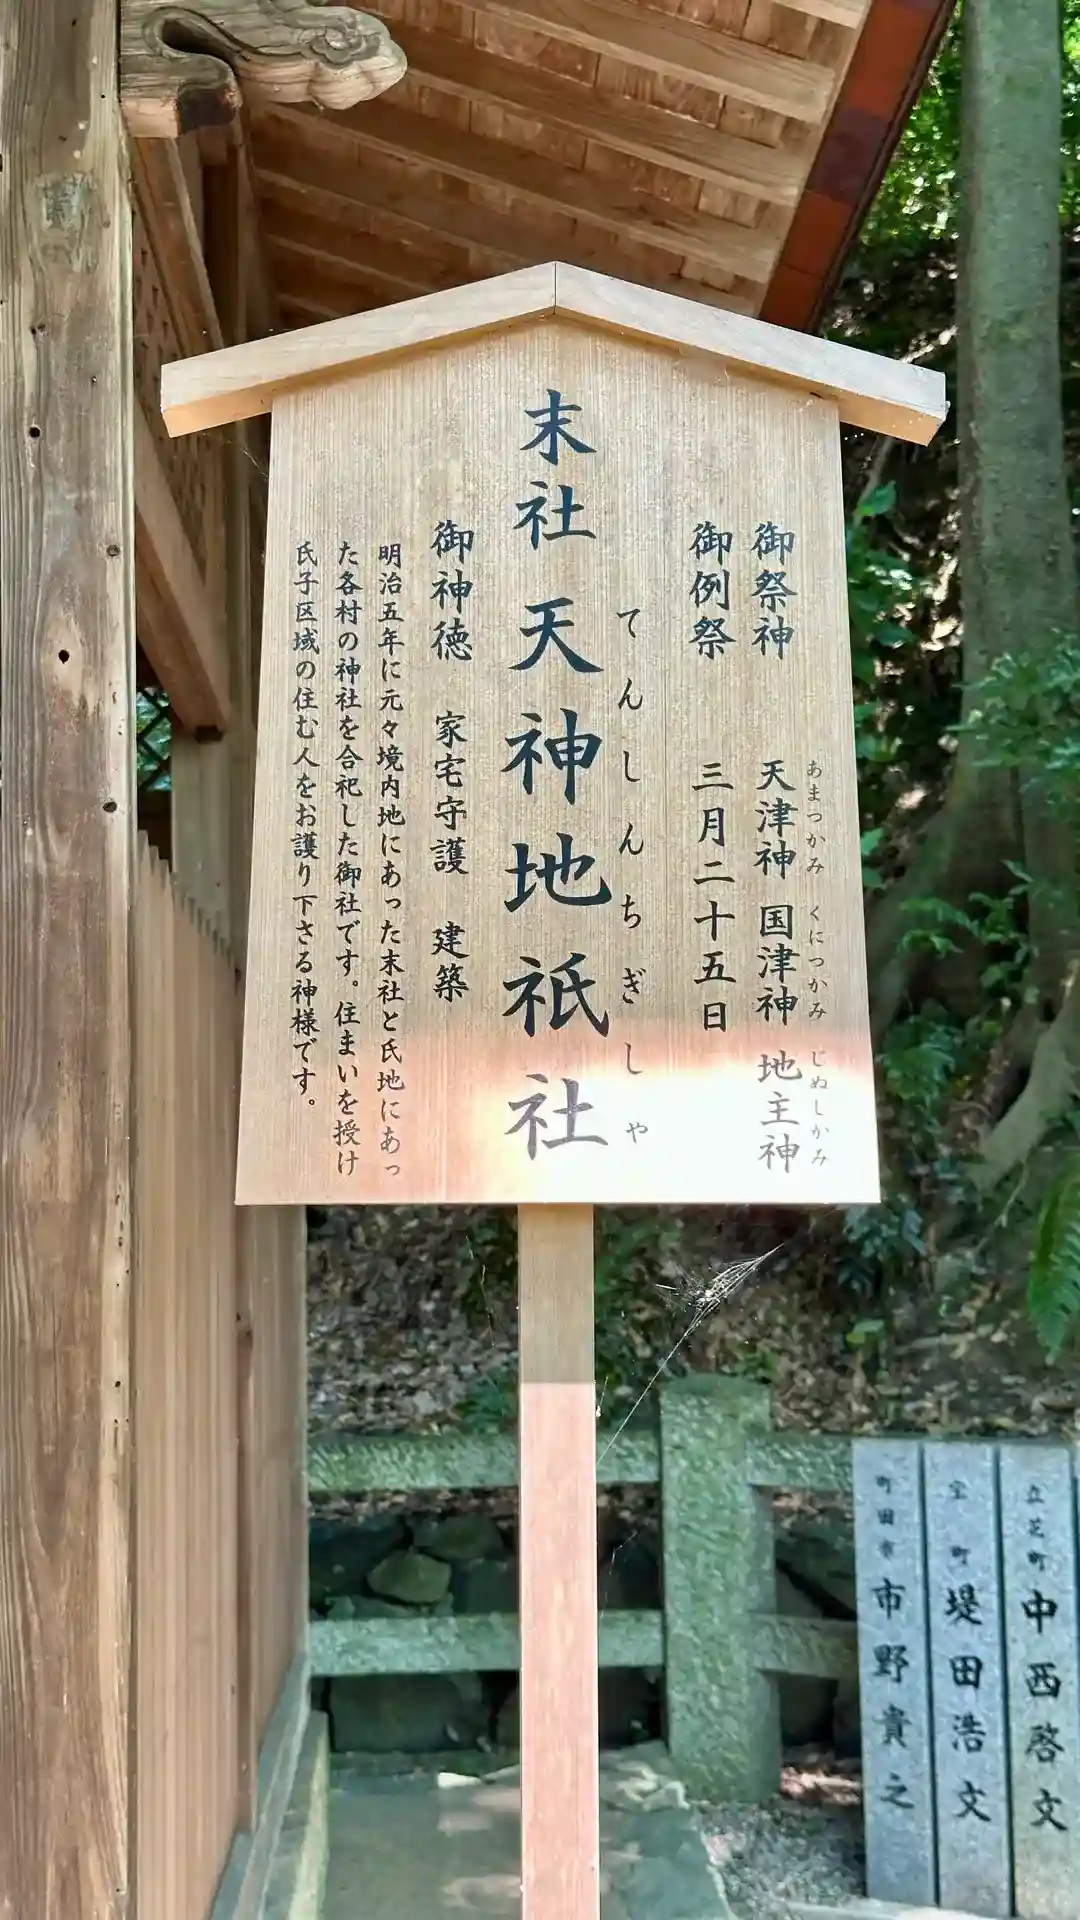 御祭神　天津神　国津神　地主神
あまつかみ　くにつかみ　じぬしかみ
御例祭　三月二十五日
末社　天神地祇社
てんしんちぎしゃ
御神徳　家宅守護　建築
明治五年に元々境内地にあった末社と氏地にあっ
た各村の神社を合祀した御社です。住まいを授け
氏子区域の住む人をお護り下さる神様です。
立芝町　中西啓文
堤田浩文
町田市　市野貴之